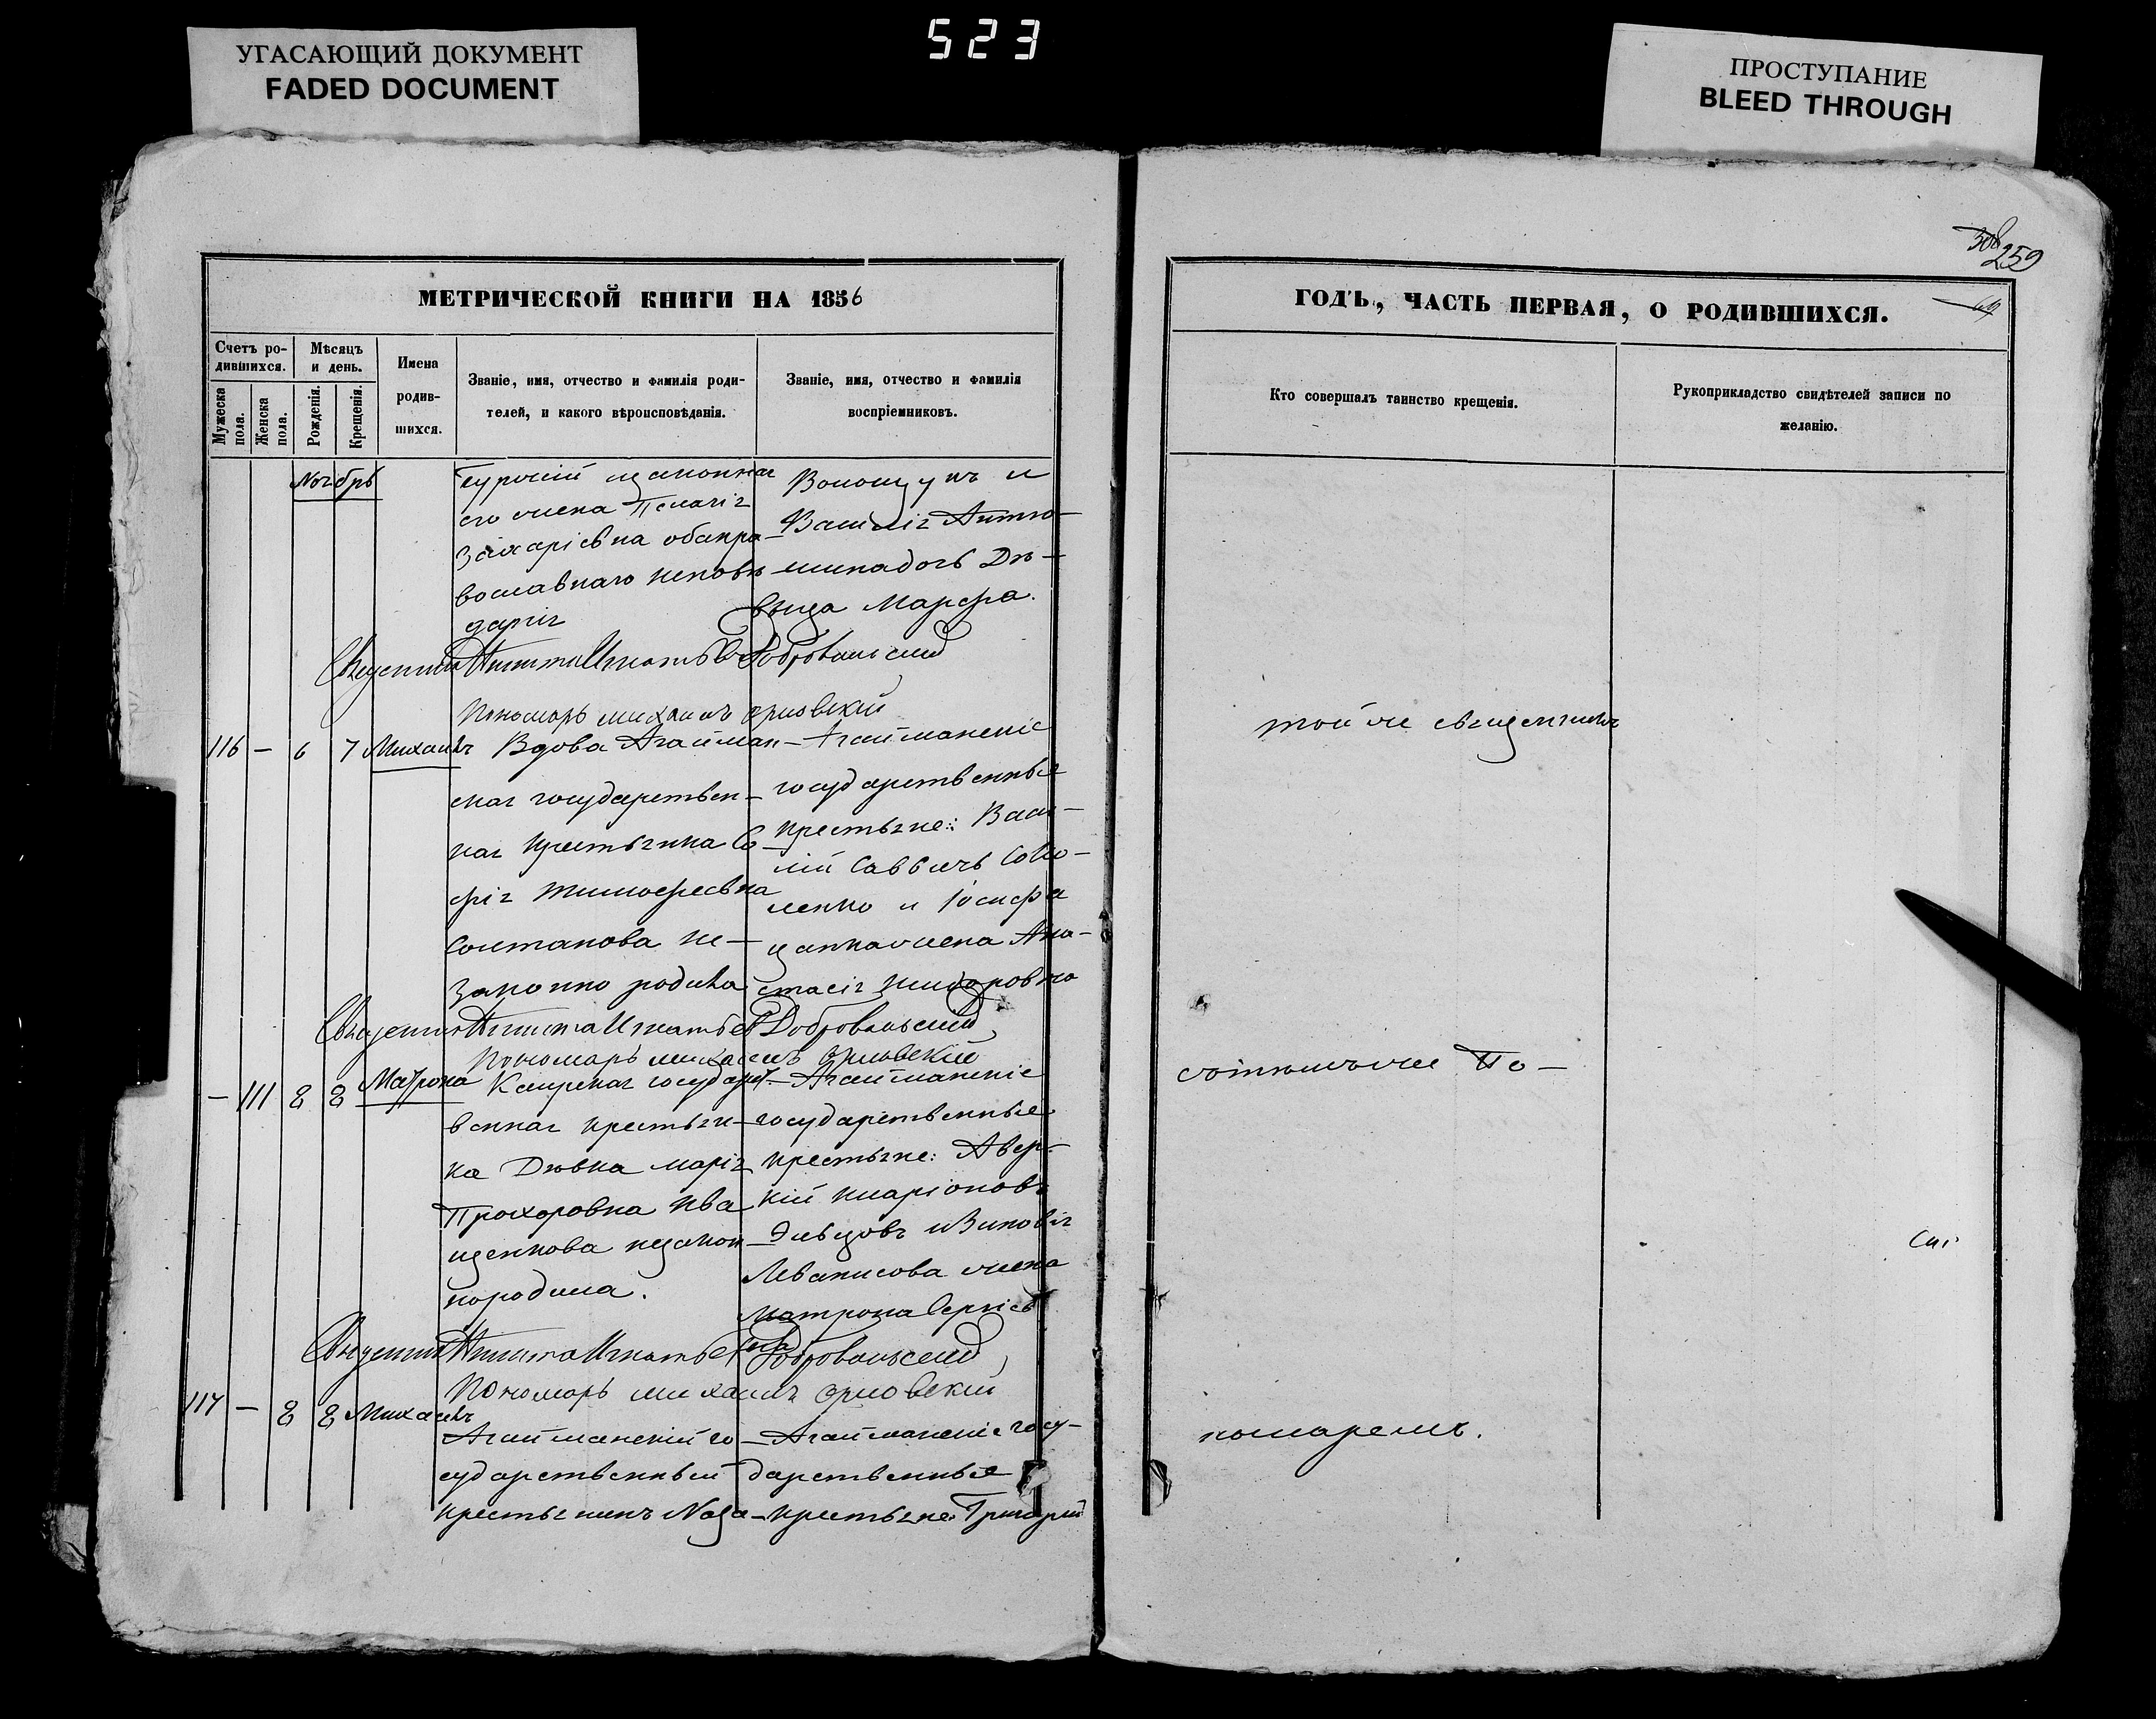 УГАСАЮЩИЙ ДОКУМЕНТ
FADED DOCUMENT
523
ПРОСТУПАНИЕ
BLEED THROUGH
259
МЕТРИЧЕСКОЙ КНИГИ НА 1856
ГОДЪ, ЧАСТЬ ПЕРВАЯ, О РОДИВШИХСЯ.
Счетъ ро-
дившихся.
Мужеска
пола.
Женска
пола.
Мѣсяцъ
и день.
Рожденія.
Крещенія.
Имена
родив-
шихся.
Званіе, имя, отчество и фамилія роди-
телей, и какого вѣроисповѣданія.
Званіе, имя, отчество и фамилія
воспріемниковъ.
Кто совершалъ таинство крещенія.
Рукоприкладство свидѣтелей записи по
желанію.
Ноябрь
законная
его жена Пелагія
Захаріевна оба пра-
вославнаго исповѣ
данія
и
Василія
Дѣ-
вица Марфа.
Священникъ Никита Игнатьевъ Добровольский
Пономарь Михаилъ Орловскій
116 - 6 7 Михаилъ
Вдова Агайман-
ская государствен-
ная крестьянка Со-
фія Тимофеевна
Солтанова не-
законно родила
Агайманскіе
государственные
крестьяне: Васи-
лій Саввичъ Соко-
ленко и Іосифа
жена Ана-
стасія
той же священникъ
Священникъ Никита Игнатьевъ Добровольский
Пономарь Михаилъ Орловский
- 111 8 8 Матрона
государст-
венная крестьян-
ка Дѣвка Марія
Прохоровна Ива
щенкова незакон-
нородила.
Агайманскіе
государственные
крестьяне: Авер-
кій Иларіоновъ
и Зиновія
жена
Матрона Сергіев
на
съ тѣмъ же По-
Священникъ Никита Игнатьевъ Добровольский
Пономарь Михаилъ Орловский
117 - 8 8 Михаилъ
Агайманскій го-
сударственный
крестьянинъ Наза-
Агайманскіе госу-
дарственные
крестьяне: Григорій
номаремъ.